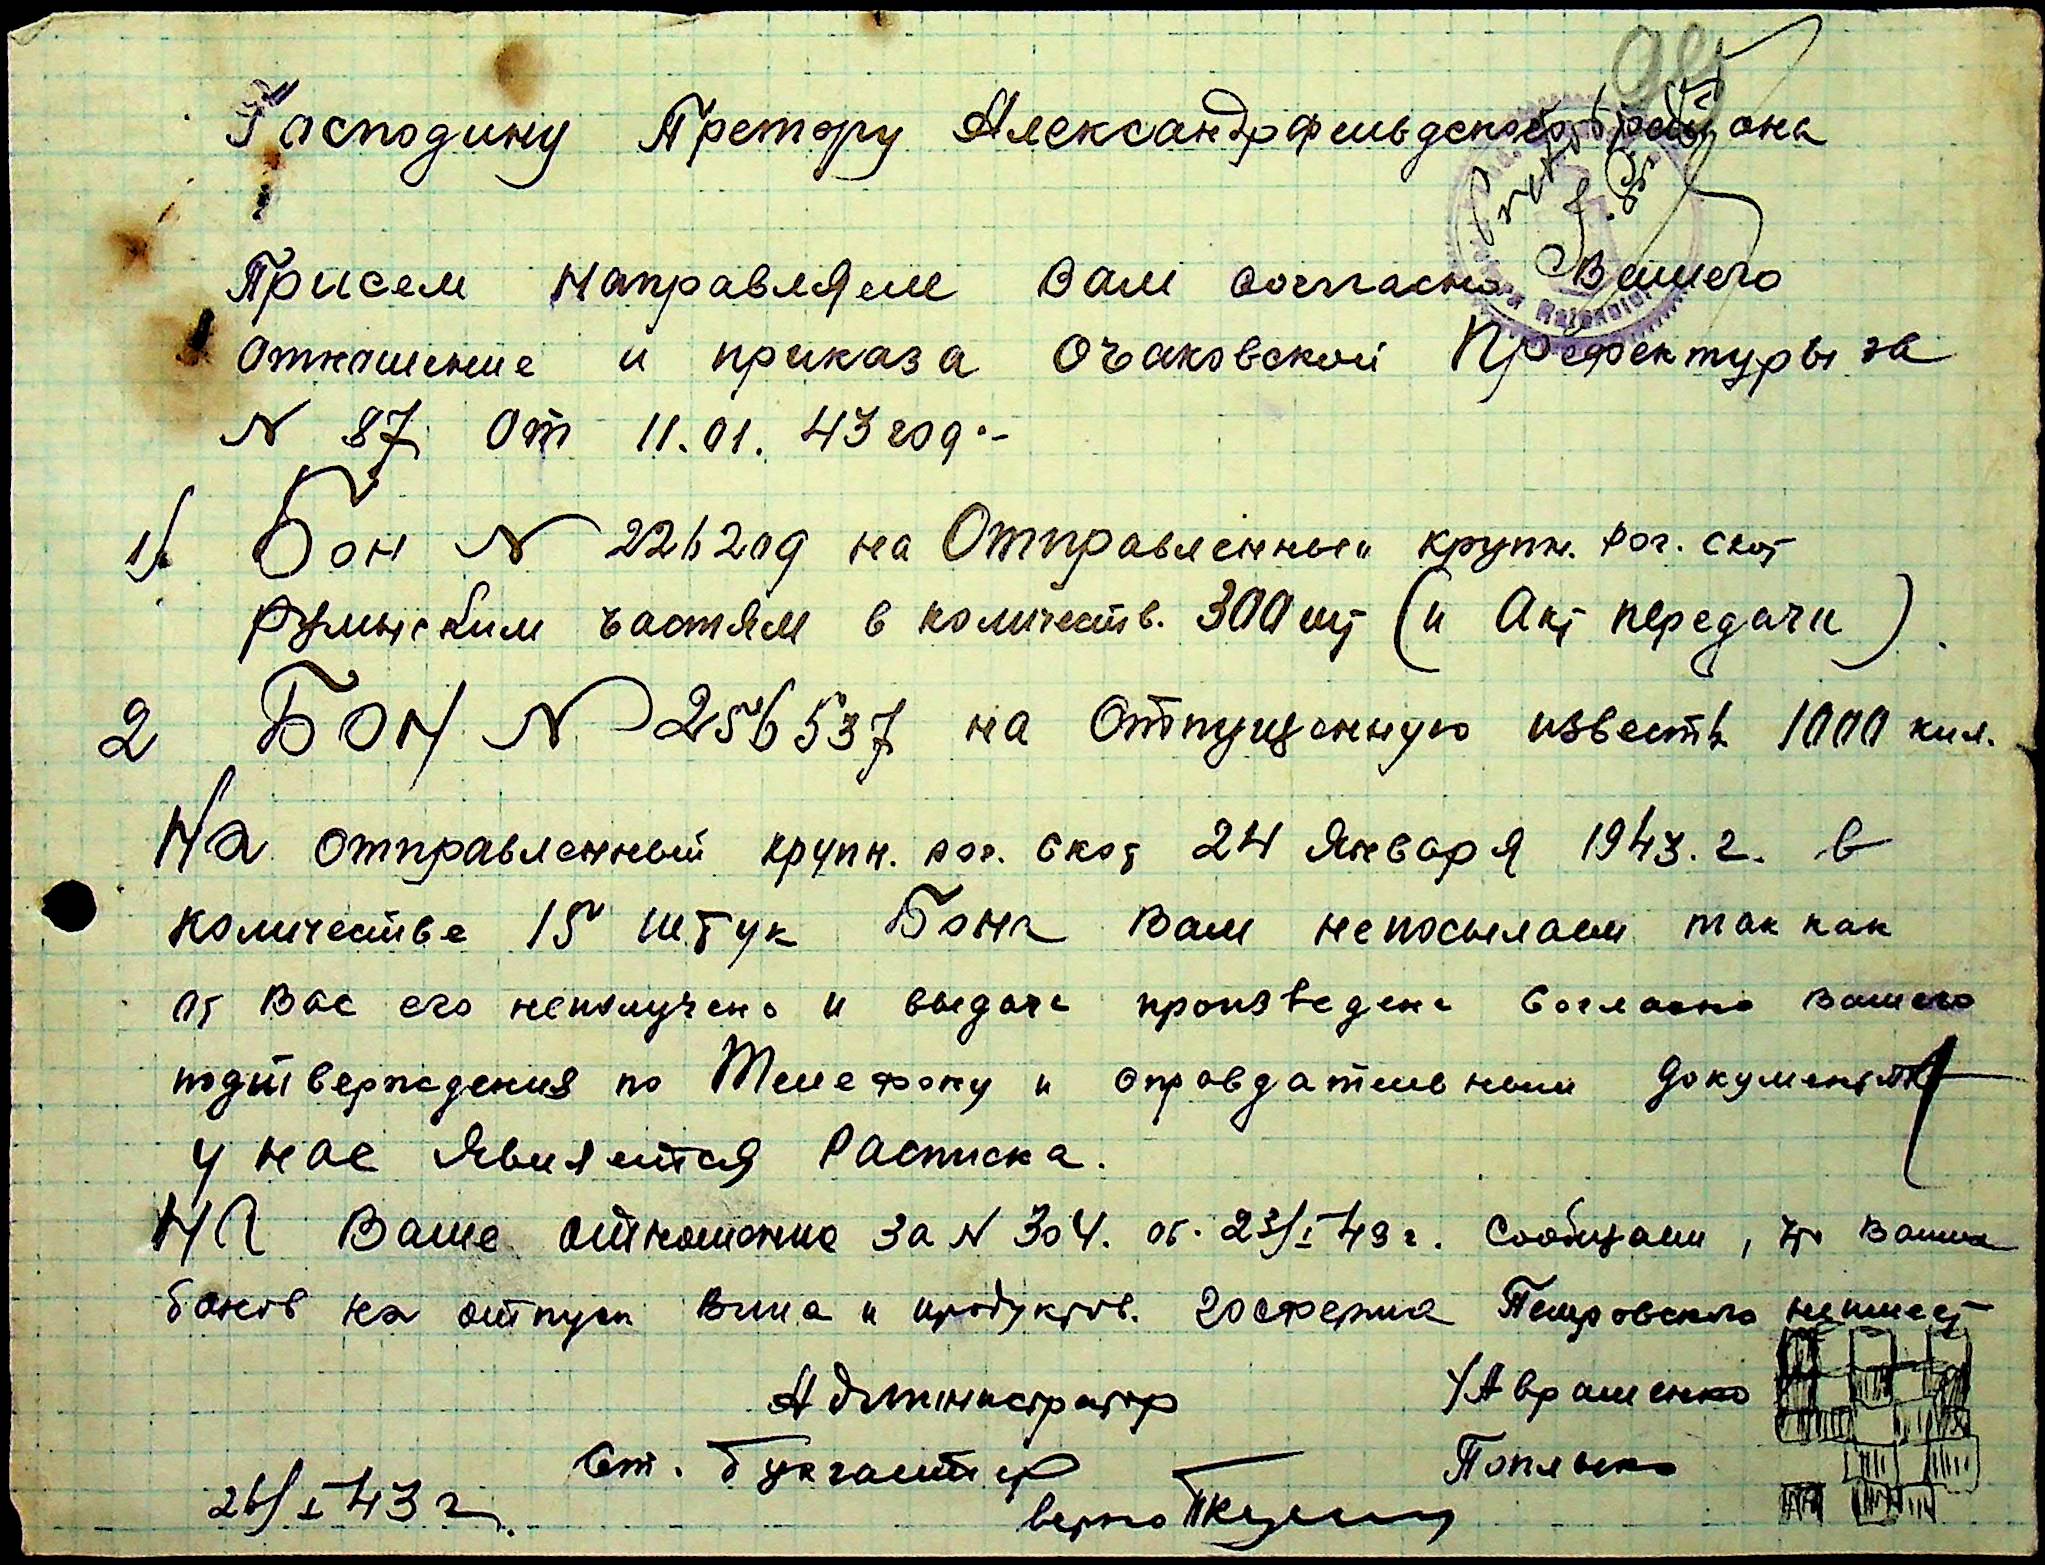 Господину Претору Александрфельдского района
Присем направляем Вам согласно Вашего
отношение и приказа Очаковской Префектуры за
N 87 от 11.01.43 год.-
1/. Бон N 226209 на Отправленный крупн. рог. скот
румынским частям в количеств. 300 шт (и Акт передачи).
2 Бон N 256537 на Отпущенную известь 1000 кил.
На отправленный крупн. рог. скот 24 Января 1943. г. в
количестве 15 штук Бона Вам непосылаем так как
от Вас его неполучено и выдача произведена согласно вашего
подтверждения по Телефону и оправдательным документом
у нас является Расписка.
На Ваше отношение за N 304. от. 23/I 43 г. сообщаем, что Ваших
бонов на отпуск вина и продуктов. госферма Петровского неимеет
Администратор /Аврашенко
Ст. бухгалтер
26/I 43 г. верно